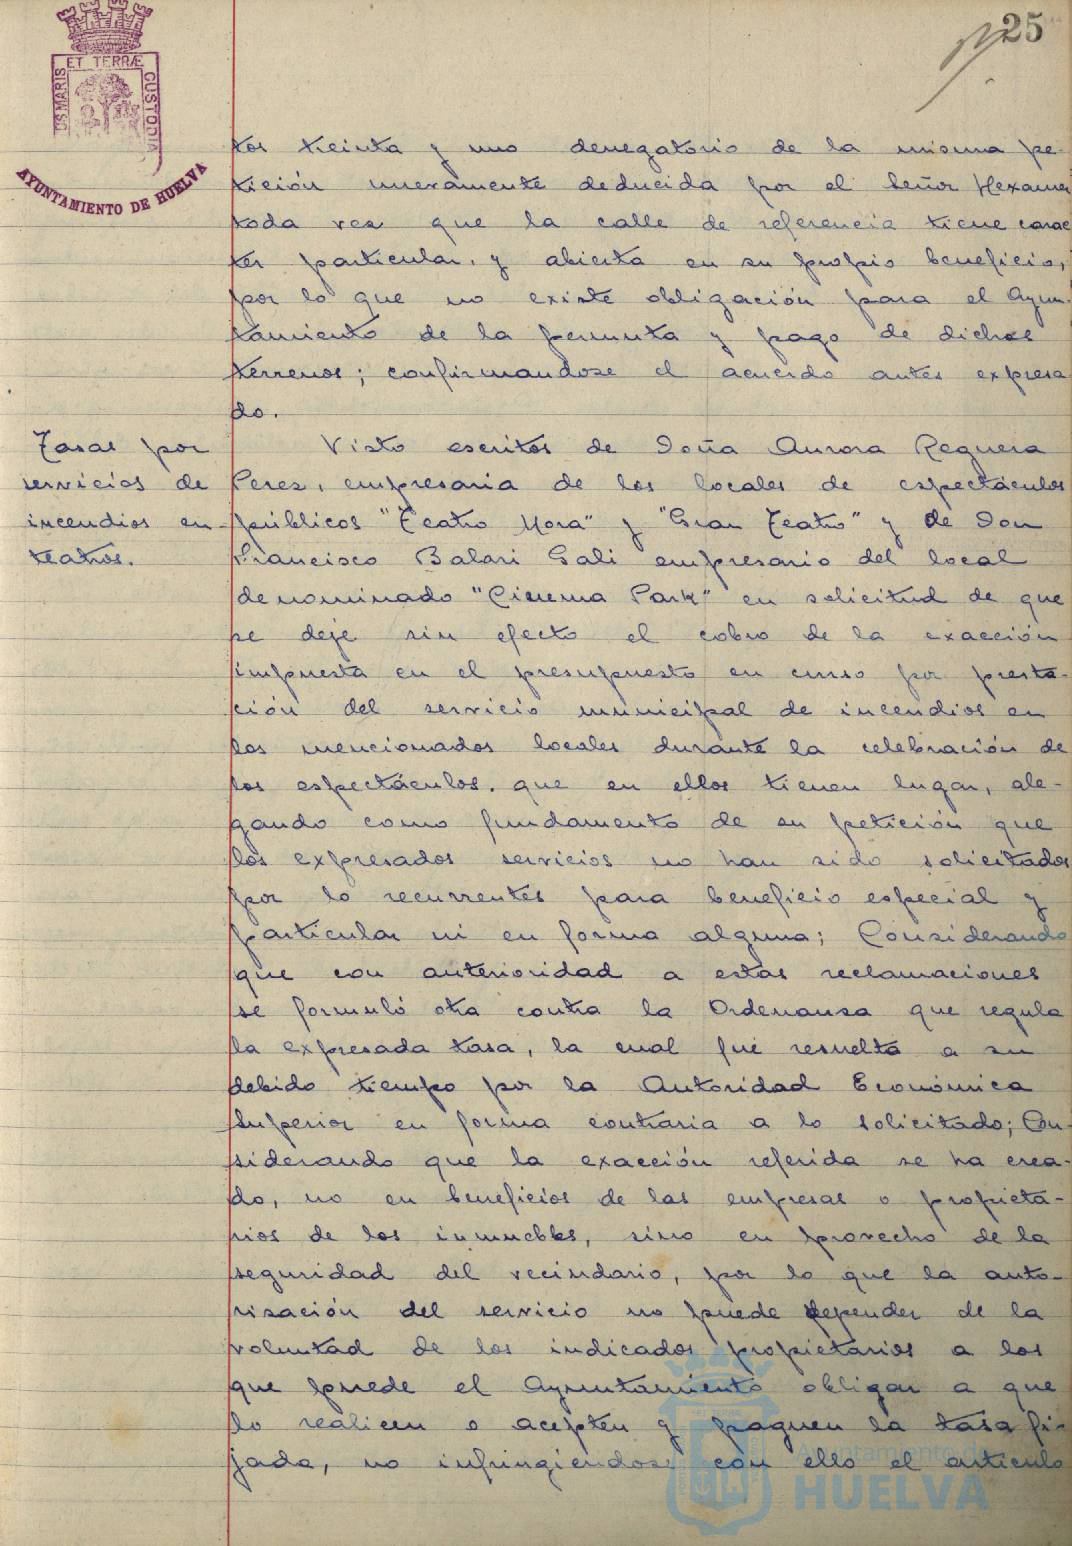 25
ET TERRÆ
US MARIS
CUSTODIA
AYUNTAMIENTO DE HUELVA
tos treinta y uno denegatorio de la misma pe-
tición nuevamente deducida por el Señor
toda vez que la calle de referencia tiene carac
ter particular, y abierta en su propio beneficio,
por lo que no existe obligación para el Ayun-
tamiento de la permuta y pago de dichos
terrenos; confirmandose el acuerdo antes expresa
do.
Tasas por
servicios de
incendios en
teatros.
Visto escritos de Doña Aurora Reguera
Perez, empresaria de los locales de espectáculos
públicos "Teatro Mora" y "Gran Teatro" y de Don
Francisco Balari Gali empresario del local
denominado "Cinema Park" en solicitud de que
se deje sin efecto el cobro de la exacción
impuesta en el presupuesto en curso por presta-
ción del servicio municipal de incendios en
los mencionados locales durante la celebración de
los espectáculos. que en ellos tienen lugar, ale-
gando como fundamento de su petición que
los expresados servicios no han sido solicitados
por lo recurrentes para beneficio especial y
particular ni en forma alguna; Considerando
que con anterioridad a estas reclamaciones
se formuló otra contra la Ordenanza que regula
la expresada tasa, la cual fué resuelta a su
debido tiempo por la Autoridad Económica
Superior en forma contraria a lo solicitado; Con-
siderando que la exacción referida se ha crea-
do, no en beneficios de las empresas o propieta-
rios de los inmuebles, sino en provecho de la
seguridad del vecindario, por lo que la auto-
rización del servicio no puede depender de la
voluntad de los indicados propietarios a los
que puede el Ayuntamiento obligar a que
lo realicen o acepten y paguen la tasa fi-
jada, no infringiendose con ello el artículo
Ayuntamiento de
HUELVA